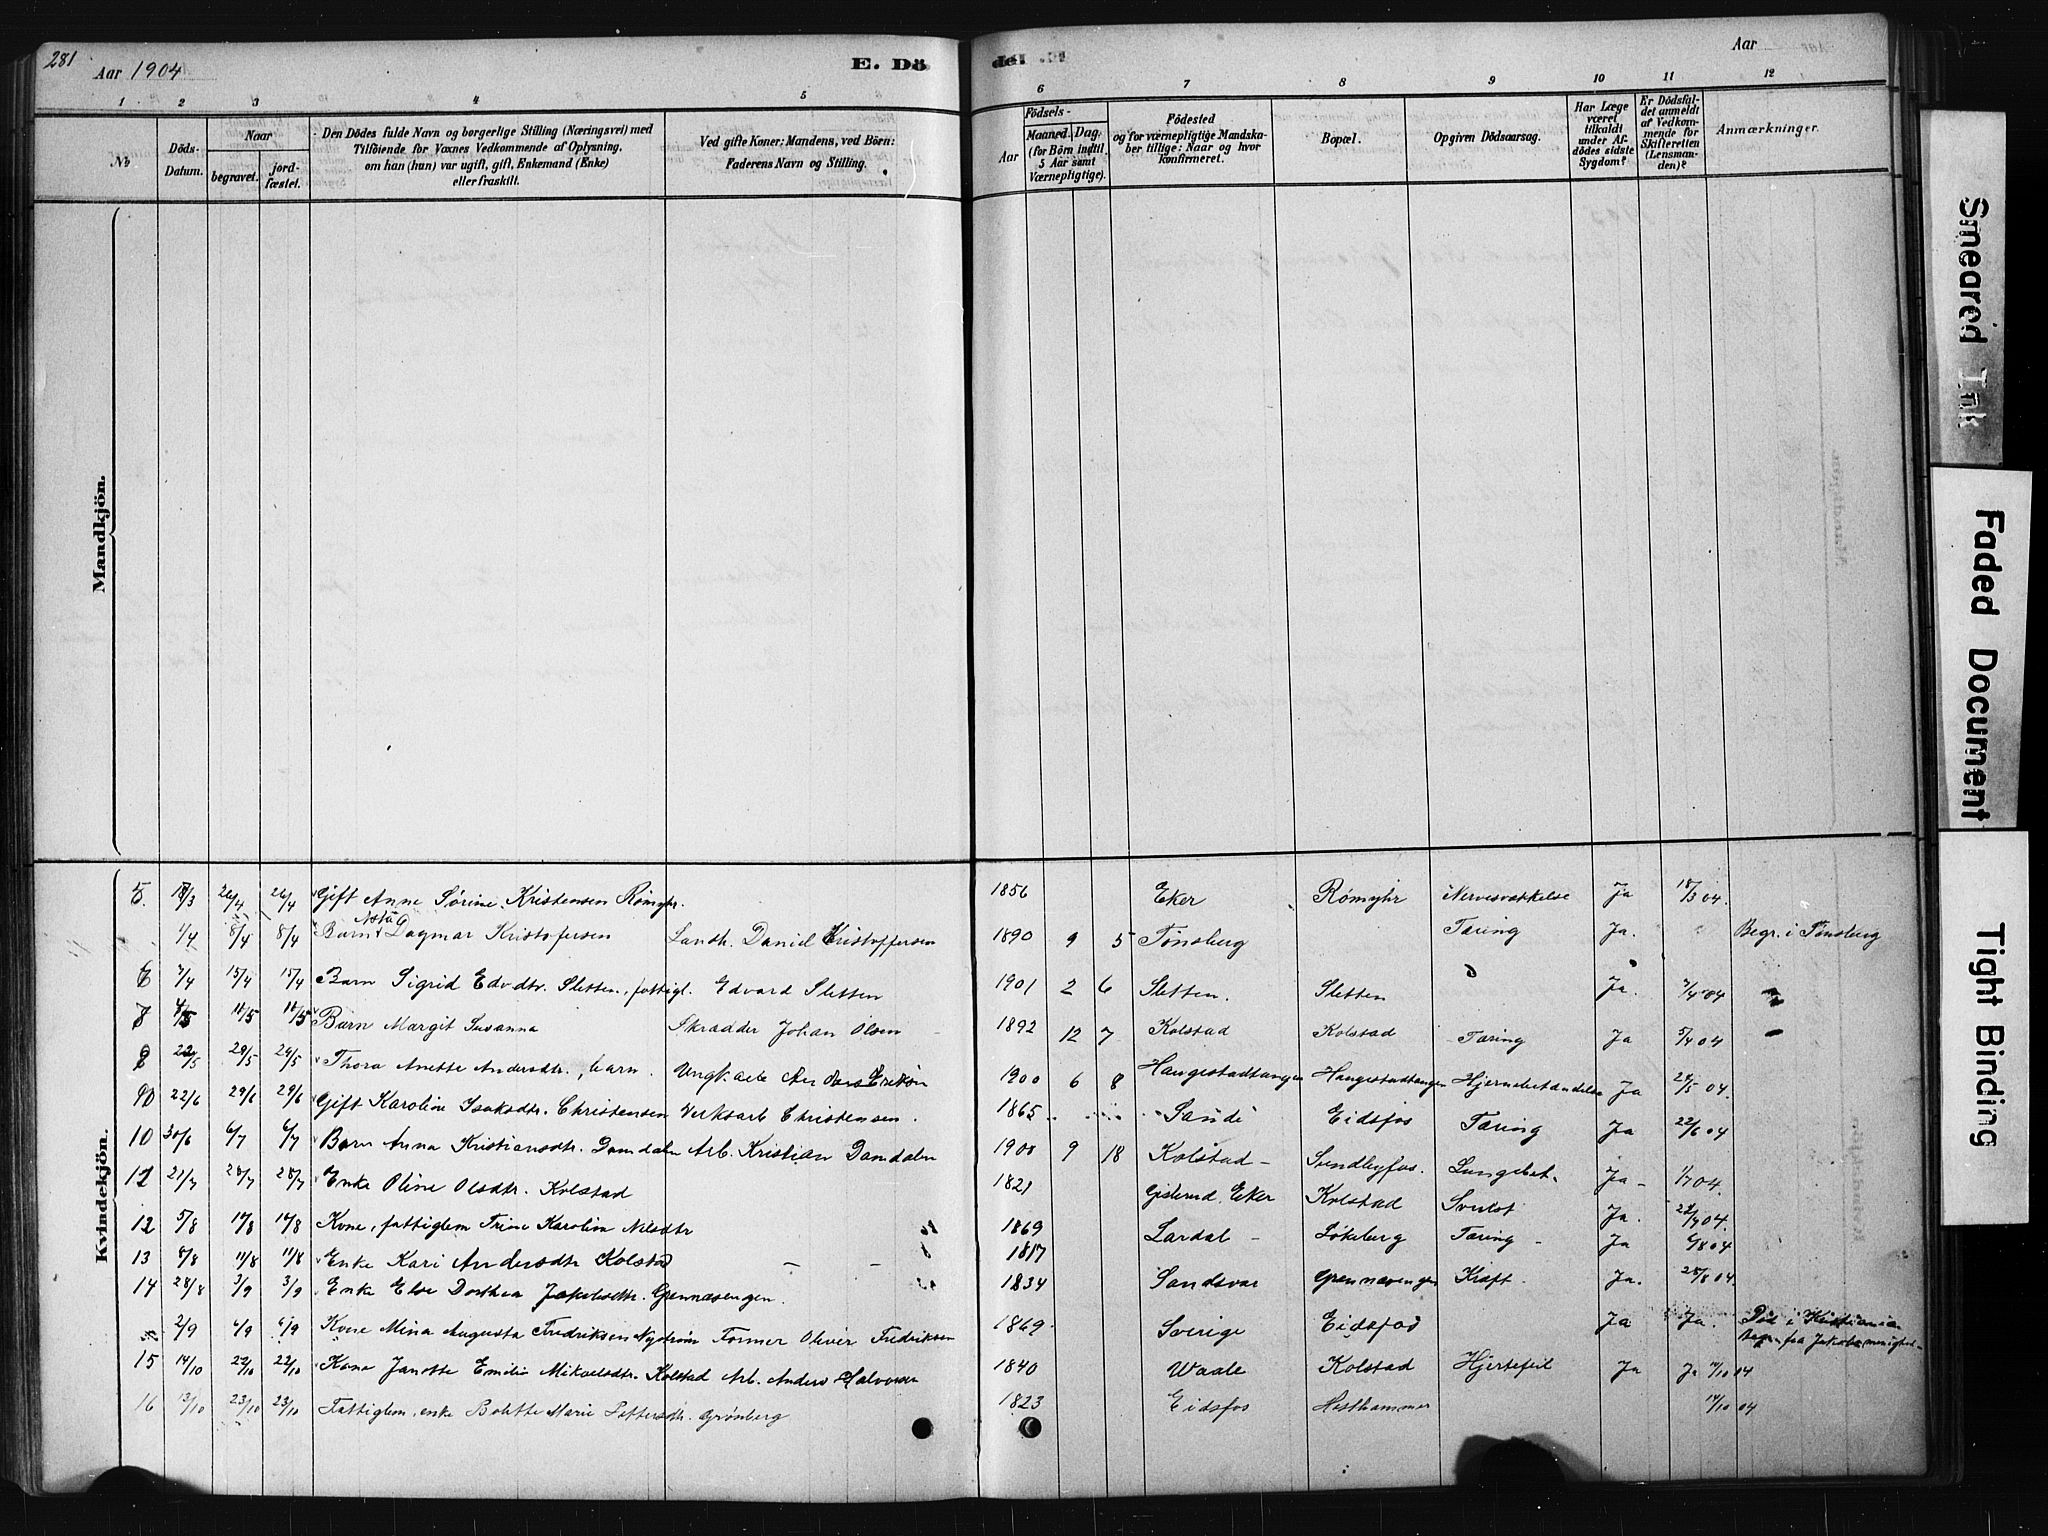 281
Aar 1904
E. Dö
del
Aar
1 2 3 4 5
6 7 8 9 10 11 12
No
Döds-Datum.
Naar
begravet.
jordfæstet.
Den Dödes fulde Navn og borgerlige Stilling (Næringsvei) med
Tilföiende for Voxnes Vedkommende af Oplysning,
om han (hun) var ugift, gift, Enkemand (Enke)
eller fraskilt.
Ved gifte Koner: Mandens, ved Börn:
Faderens Navn og Stilling.
Födsels-
Aar
Maaned. Dag.
(for Börn indtil
5 Aar samt
Værnepligtige).
Födested
og for værnepligtige Mandskaber tillige: Naar og hvor
konfirmeret.
Bopæl.
Opgiven Dödsaarsag.
Har Læge
været
tilkaldt
under Afdödes sidste
Sygdom?
Er Dödsfaldet anmeldt
af Vedkommende for
Skifteretten
(Lensmanden)?
Anmærkninger.
Mandkjön.
Kvindekjön.
5. 18/3 26/4 26/4 Gift Anne Sørine Kristensen Rømyhr. 1856 Eker Rømyhr Nervesvækkelse Ja 18/3 04.
1/4 8/4 8/4 Barn Dagmar Kristofersen Landh. Daniel Kristoffersen 1890 9 5 Tønsberg Tæring Ja. Begr. i Tønsberg
6 7/4 15/4 15/4 Barn Sigrid Edvdtr. Sletten, fattigl. Edvard Sletten 1901 2 6 Sletten. Sletten Ja. 7/4 04
7 4/5 11/5 11/5 Barn Margit Susanna Skrædder Johan Olsen 1892 12 7 Kolstad Kolstad Tæring Ja 5/4 04
8 22/5 29/5 29/5 Thora Anette Andersdtr., barn. 1900 6 8 Haugestadtangen Haugestadtangen Hjernebetændelse Ja 24/5 04.
90 22/6 29/6 29/6 Gift Karoline Isaksdtr. Christensen Verksarb Christensen. 1865 Sande Eidsfos Tæring Ja 22/6 04
10 30/6 6/7 6/7 Barn Anna Kristiansdtr. Damdalen Arb. Kristian Damdalen 1900 9 18 Kolstad Sundbyfos. Lungebet. Ja 1/7 04.
12 21/7 28/7 28/7 Enke Oline Olsdtr. Kolstad 1821 Gislerud, Eker Kolstad Svulst Ja. 22/7 04.
12 5/8 14/8 14/8 Kone, fattiglem Trine Karoline Nilsdtr 1869 Lardal Løkeberg Tæring Ja 6/8 04
13 8/8 11/8 11/8 Enke Kari Andersdtr Kolstad 1817
14 28/8 3/9 3/9 Enke Else Dorthea Jakobsdtr. Grennæsengen. 1834 Sandsvær Grennæsengen Kræft Ja. 28/8 04.
2/9 6/9 6/9 Kone Mina Augusta Fredriksen Nystrøm Former Oliver Fredriksen 1869 Sverige Eidsfos Ja Ja. Død i Kristiania
Begr. fra Jakobs menighed
15 14/10 22/10 22/10 Kone Janette Emilie Mikaelsdtr. Kolstad Arb. Anders Halvorsen 1840 Waale Kolstad Hjertefeil Ja Ja 17/10 04
16 13/10 23/10 23/10 Fattiglem, enke Bolette Marie Pettersdtr. Grønberg 1823 Eidsfos Hesthammer 14/10 04
Smeared Ink
Faded Document
Tight Binding